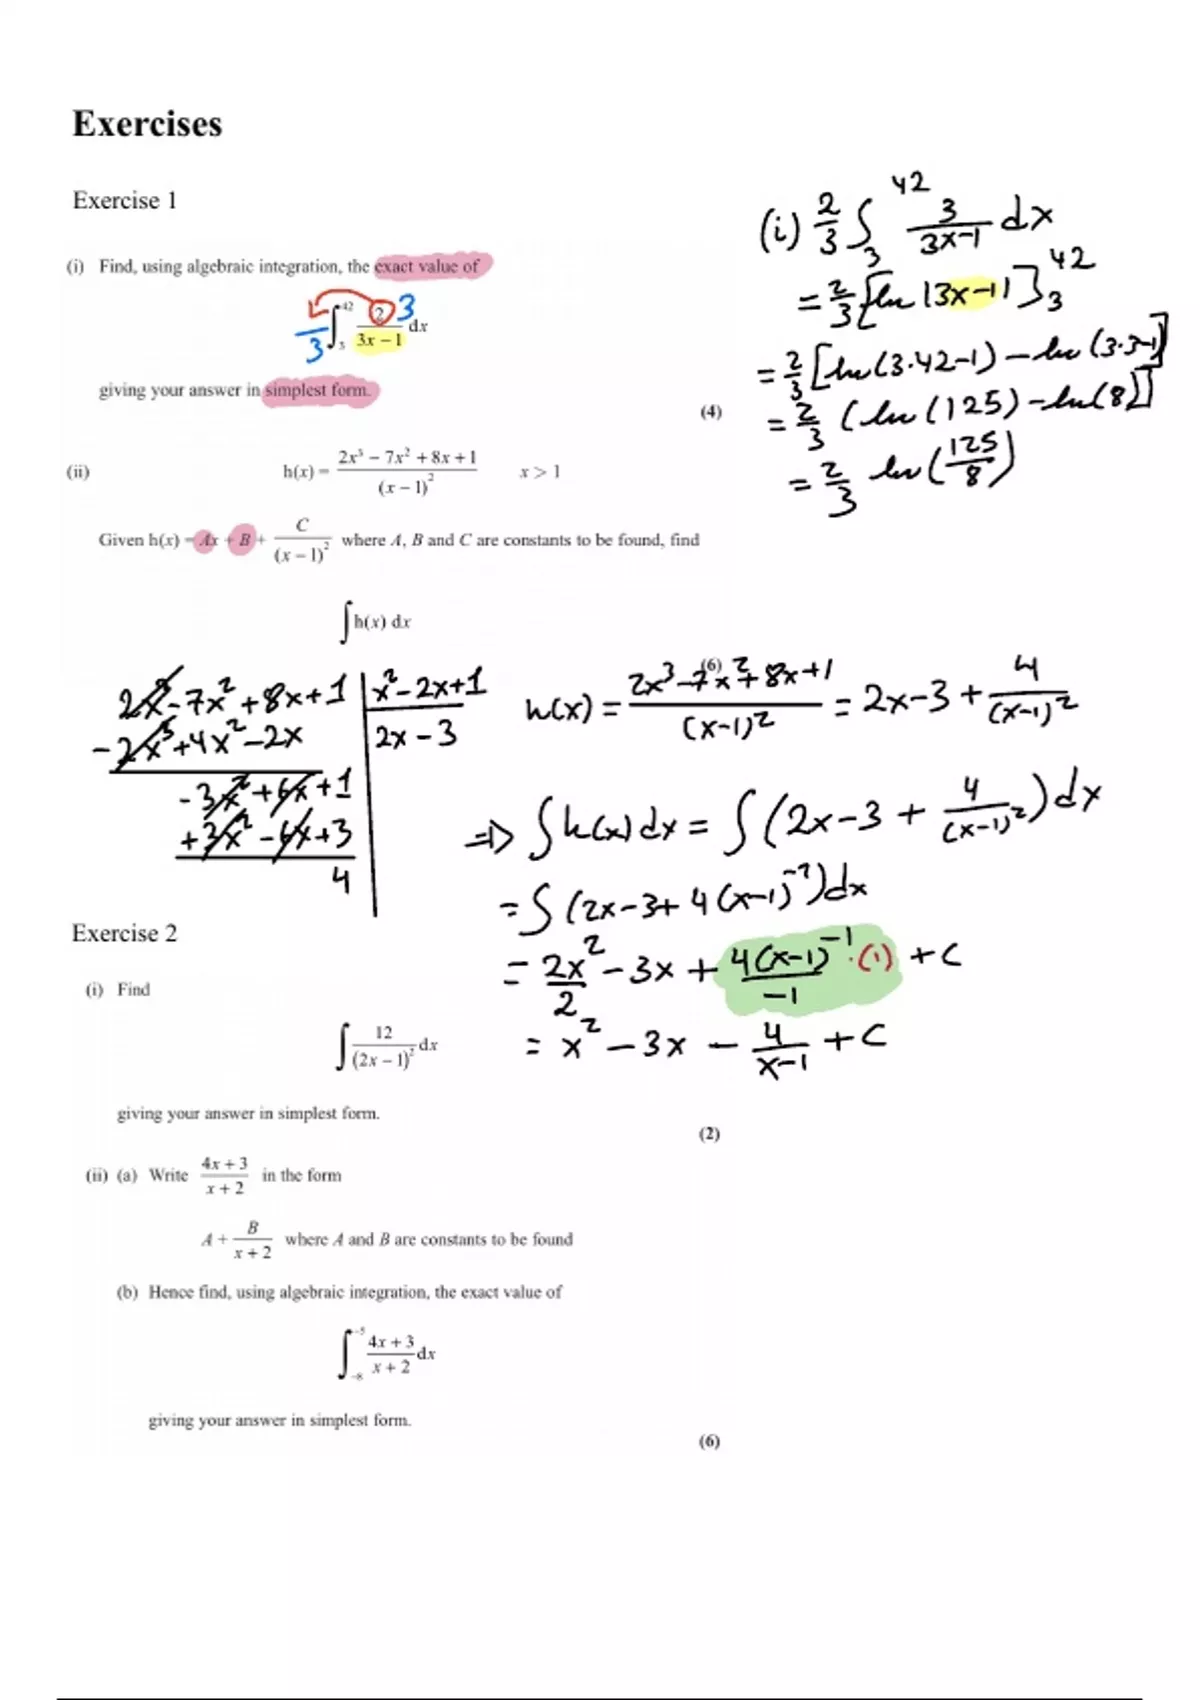 Exercises
Exercise 1
(i) Find, using algebraic integration, the exact value of
∫₃⁴² 2/(3x − 1) dx
2/3
3
giving your answer in simplest form.
(4)
(i) 2/3 ∫₃⁴² 3/(3x-1) dx
= 2/3 [ln |3x-1|]₃⁴²
= 2/3 [ln(3·42-1) - ln(3·3-1)]
= 2/3 (ln(125) - ln(8)]
= 2/3 ln(125/8)
(ii) h(x) = (2x³ − 7x² + 8x + 1)/(x − 1)² x > 1
Given h(x) = Ax + B + C/(x − 1)² where A, B and C are constants to be found, find
∫ h(x) dx
(6)
2x³ - 7x² + 8x + 1 | x² - 2x + 1
- 2x³ + 4x² - 2x | 2x - 3
- 3x² + 6x + 1
+ 3x² - 6x + 3
4
h(x) = (2x³ - 7x² + 8x + 1)/(x-1)² = 2x - 3 + 4/(x-1)²
=> ∫h(x)dx = ∫(2x - 3 + 4/(x-1)²)dx
= ∫(2x - 3 + 4(x-1)⁻²)dx
= 2x²/2 - 3x + 4(x-1)⁻¹/-1 ·(1) + C
= x² - 3x - 4/(x-1) + C
Exercise 2
(i) Find
∫ 12/(2x − 1)² dx
giving your answer in simplest form.
(2)
(ii) (a) Write (4x + 3)/(x + 2) in the form
A + B/(x + 2) where A and B are constants to be found
(b) Hence find, using algebraic integration, the exact value of
∫₋₈⁻⁵ (4x + 3)/(x + 2) dx
giving your answer in simplest form.
(6)